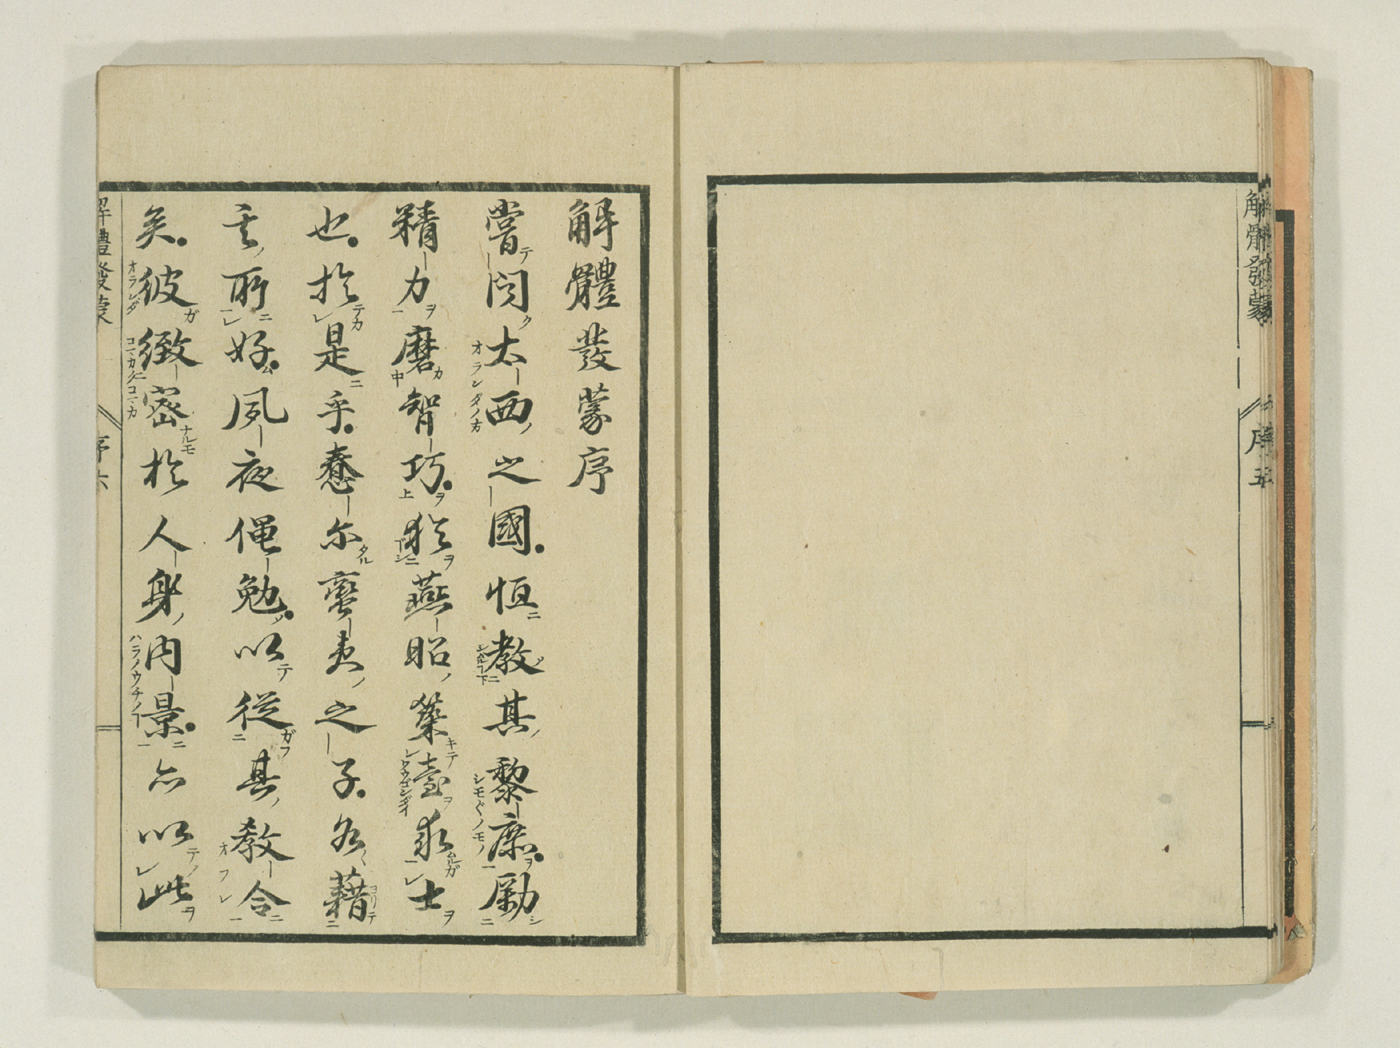 解體發蒙
序五
解體發蒙序
嘗聞太西之國恒教其黎庶勵
精力磨智巧猶燕昭築臺求士
也於是乎惷尔蠻夷之子各藉
其所好夙夜僶勉以從其教令
矣彼緻密於人身内景亦以此
解體發蒙
序六